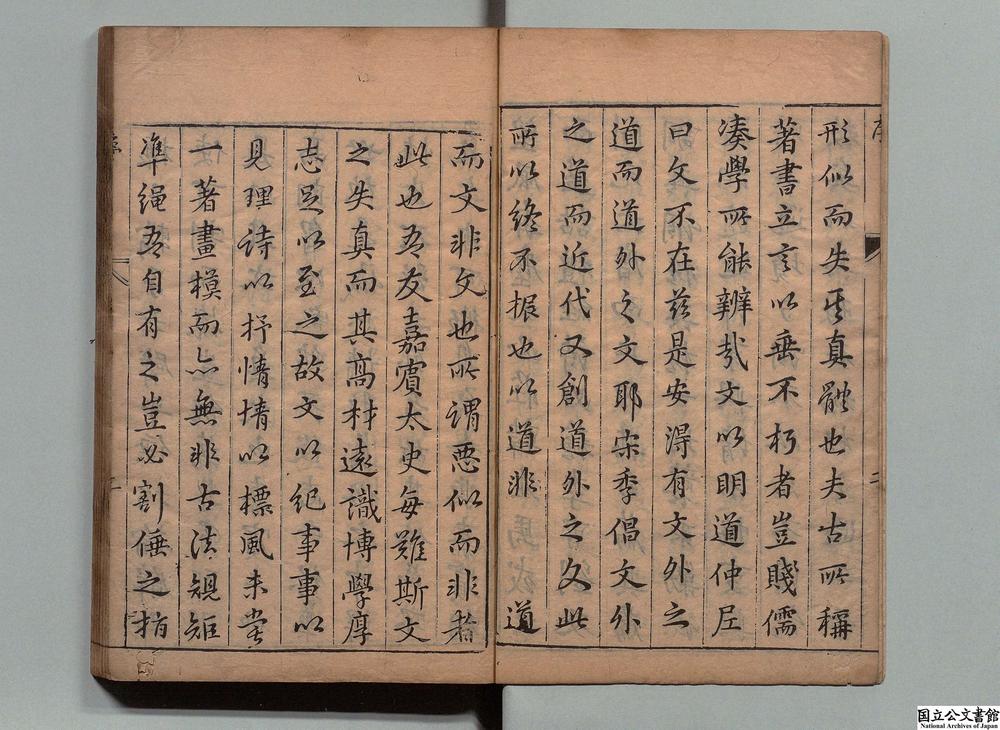 形似而失其真體也夫古所稱
著書立言以垂不朽者豈賤儒
湊學所能辨哉文以明道仲尼
曰文不在茲是安淂有文外之
道而道外之文耶宋季倡文外
之道而近代又創道外之文此
所以終不振也以道非道
而文非文也所謂惡似而非者
此也吾友嘉賔太史每難斯文
之失真而其髙材遠識博學厚
志足以至之故文以紀事事以
見理詩以抒情情以標風未甞
一著畫模而亦無非古法規矩
凖繩吾自有之豈必割倕之指
序
二
国立公文書館
National Archives of Japan